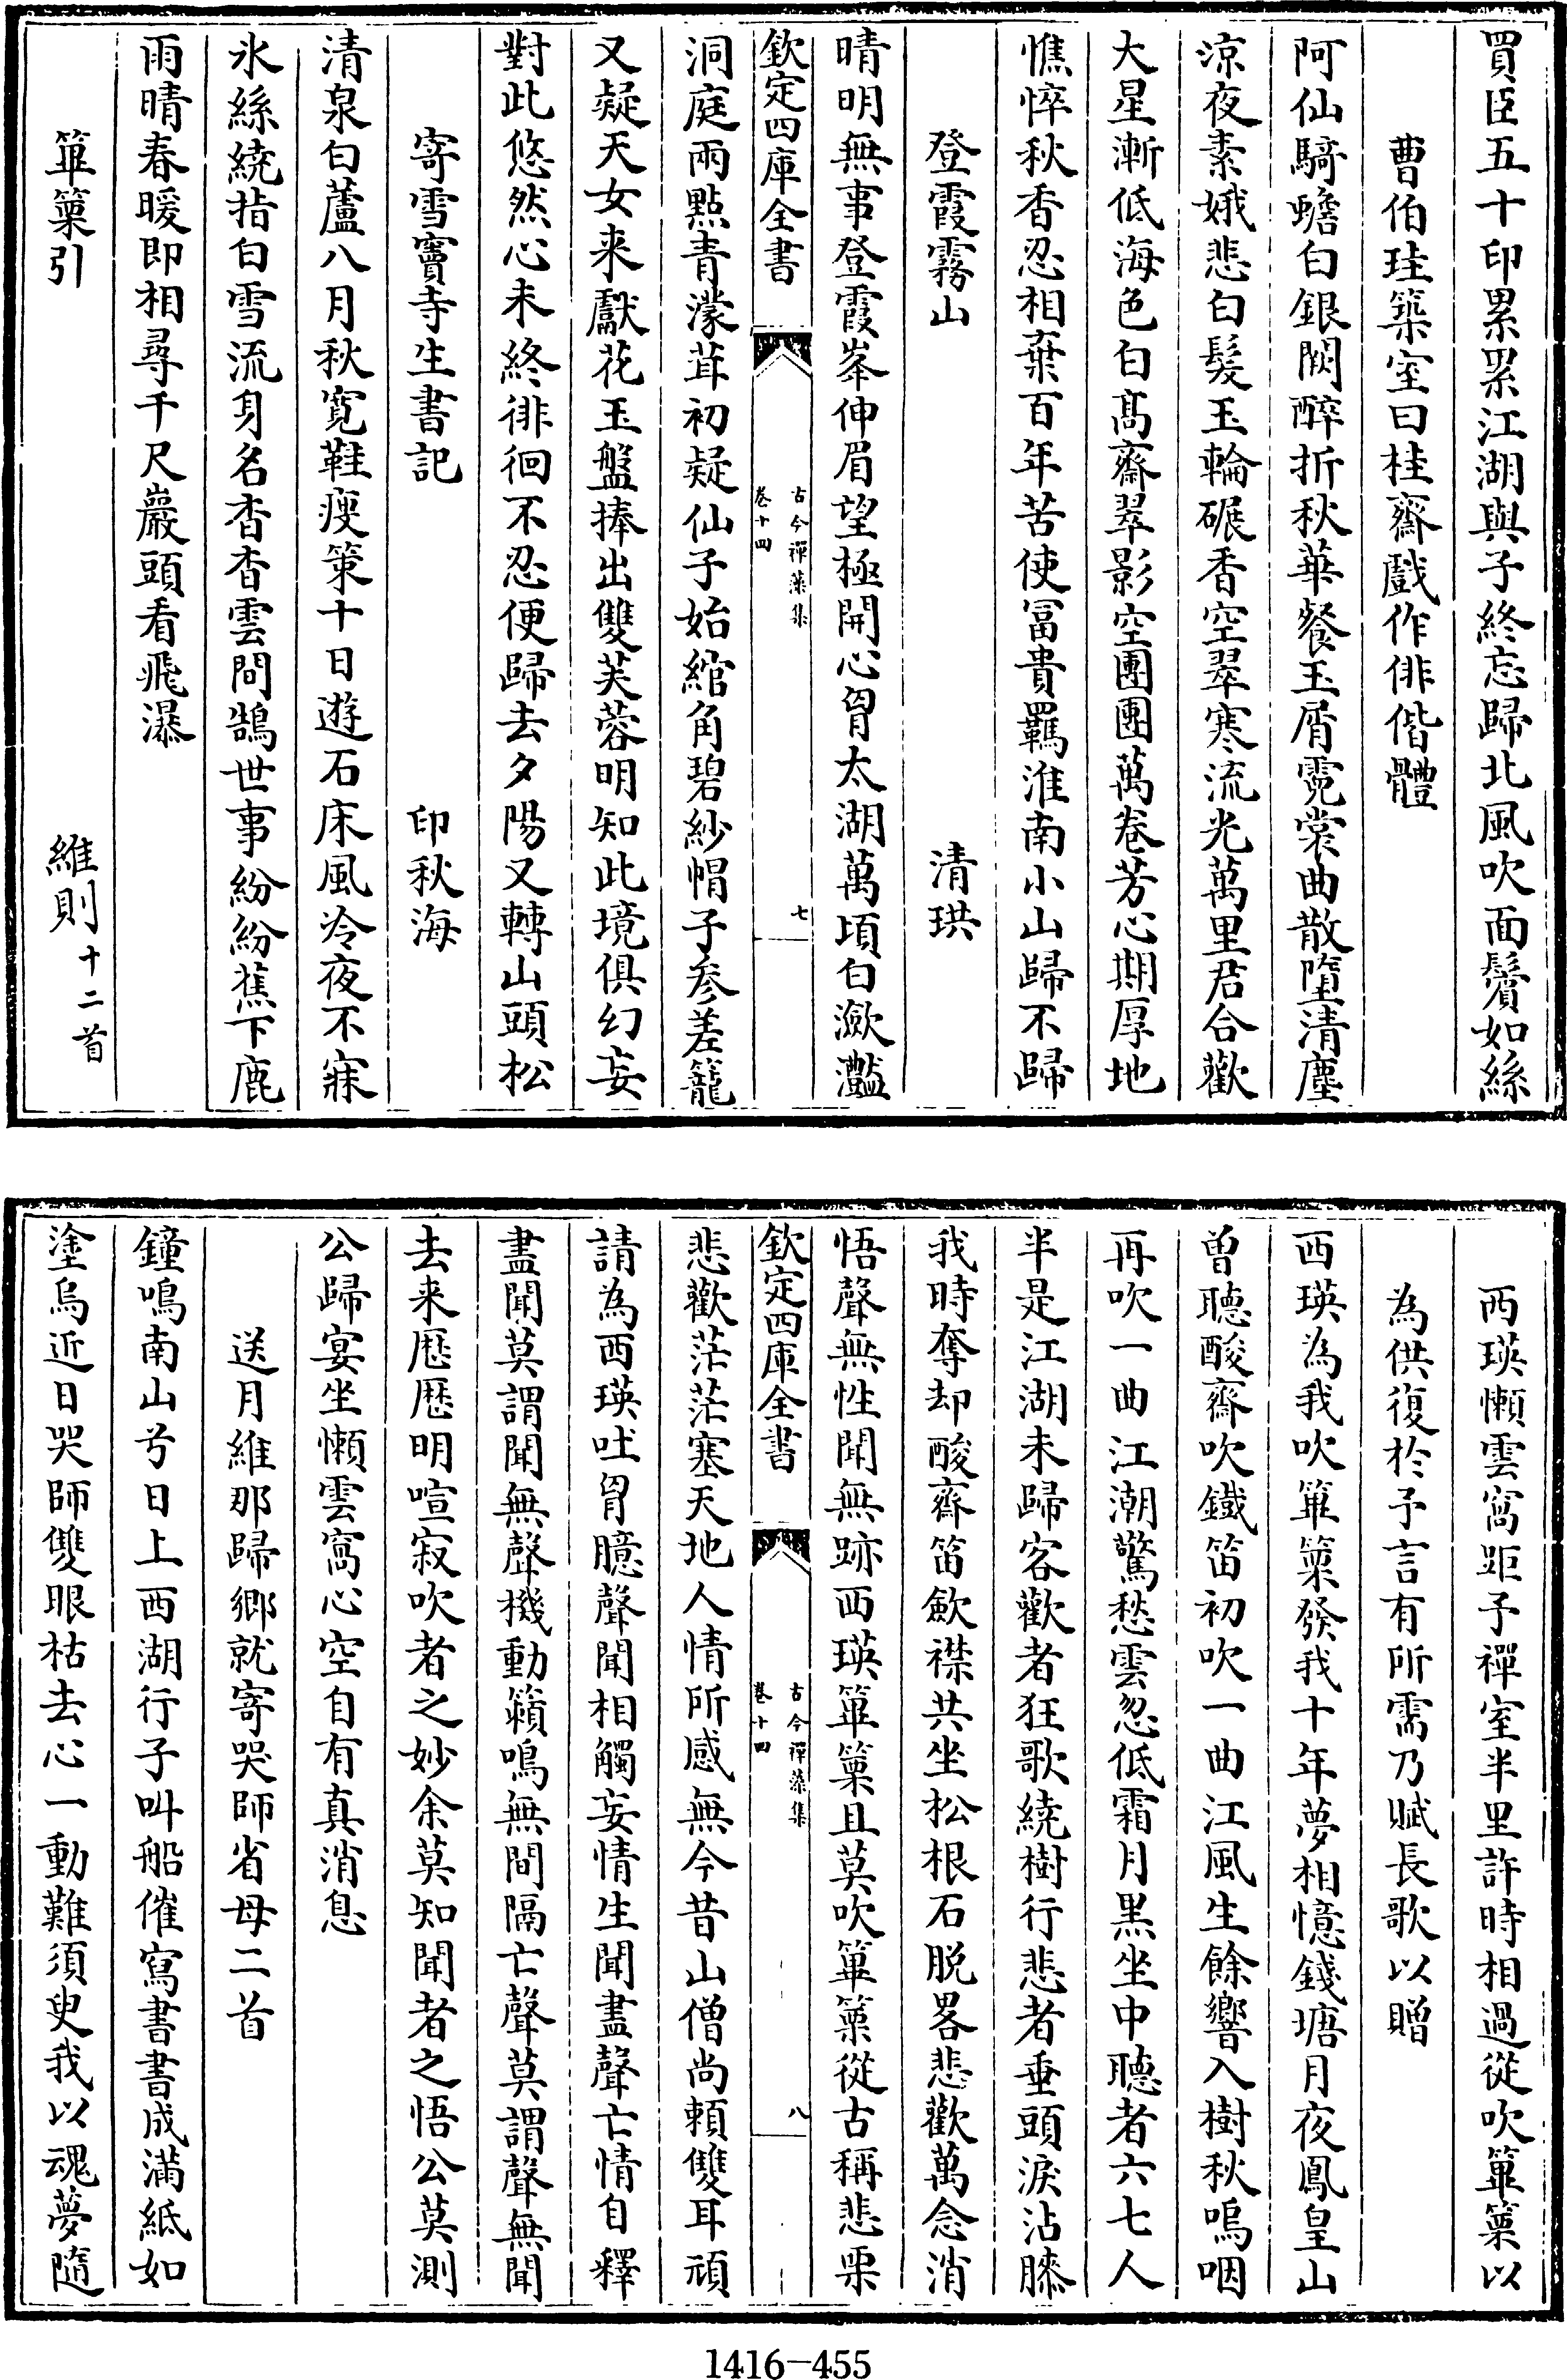 買臣五十印累累江湖與子終忘歸北風吹面鬢如絲
曹伯珪築室曰桂齋戲作俳偕體
阿仙騎蟾白銀闕醉折秋華餐玉屑霓裳曲散墮清塵
涼夜素娥悲白髮玉輪碾香空翠寒流光萬里君合歡
大星漸低海色白髙齋翠影空團團萬卷芳心期厚地
憔悴秋香忍相棄百年苦使冨貴羈淮南小山歸不歸
登霞霧山　清珙
晴明無事登霞峯伸眉望極開心胷太湖萬頃白瀲灩
欽定四庫全書　古今禪藻集　卷十四　七
洞庭兩點青濛茸初疑仙子始綰角碧紗帽子參差籠
又疑天女来獻花玉盤捧出雙芙蓉明知此境俱幻妄
對此悠然心未終徘徊不忍便歸去夕陽又轉山頭松
寄雪竇寺生書記　印秋海
清泉白蘆八月秋寛鞋瘦策十日遊石床風冷夜不寐
氷絲繞指白雪流身名杳杳雲間鵠世事紛紛蕉下鹿
雨晴春暖即相尋千尺巖頭看飛瀑
篳篥引　維則十二首
西瑛懶雲窩距予禪室半里許時相過從吹篳篥以
為供復於予言有所需乃賦長歌以贈
西瑛為我吹篳篥發我十年夢相憶錢塘月夜鳳皇山
曽聽酸齋吹鐵笛初吹一曲江風生餘響入樹秋嗚咽
再吹一曲江潮驚愁雲忽低霜月黒坐中聽者六七人
半是江湖未歸客歡者狂歌繞樹行悲者垂頭淚沾膝
我時奪却酸齋笛斂襟共坐松根石脱畧悲歡萬念消
悟聲無性聞無跡西瑛篳篥且莫吹篳篥從古稱悲栗
欽定四庫全書　古今禪藻集　卷十四　八
悲歡茫茫塞天地人情所感無今昔山僧尚頼雙耳頑
請為西瑛吐胷臆聲聞相觸妄情生聞盡聲亡情自釋
盡聞莫謂聞無聲機動籟鳴無間隔亡聲莫謂聲無聞
去来歴歴明喧寂吹者之妙余莫知聞者之悟公莫測
公歸宴坐懶雲窩心空自有真消息
送月維那歸鄉就寄哭師省母二首
鐘鳴南山兮日上西湖行子叫船催寫書書成滿紙如
塗烏近日哭師雙眼枯去心一動難須臾我以魂夢隨
1416—455